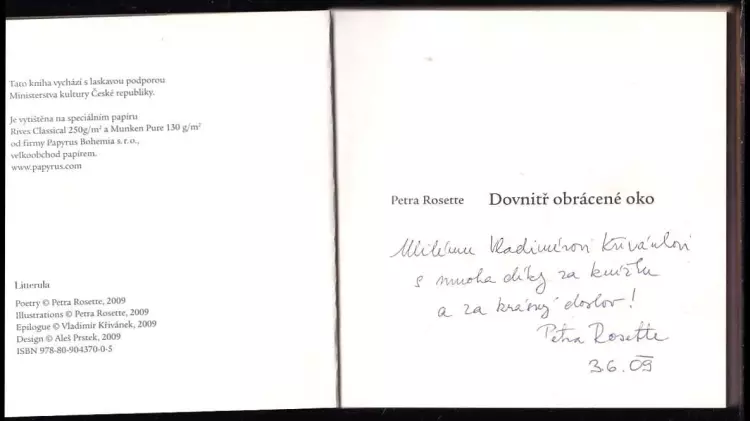 Tato kniha vychází s laskavou podporou
Ministerstva kultury České republiky.
Je vytištěna na speciálním papíru
Rives Classical 250g/m² a Munken Pure 130 g/m²
od firmy Papyrus Bohemia s. r. o.,
velkoobchod papírem.
www.papyrus.com
Litterula
Poetry © Petra Rosette, 2009
Illustrations © Petra Rosette, 2009
Epilogue © Vladimír Křivánek, 2009
Design © Aleš Prstek, 2009
ISBN 978-80-904370-0-5
Petra Rosette Dovnitř obrácené oko
Milému Vladimírovi Křivánkovi
s mnoha díky za knížku
a za krásný doslov!
Petra Rosette
3.6.09